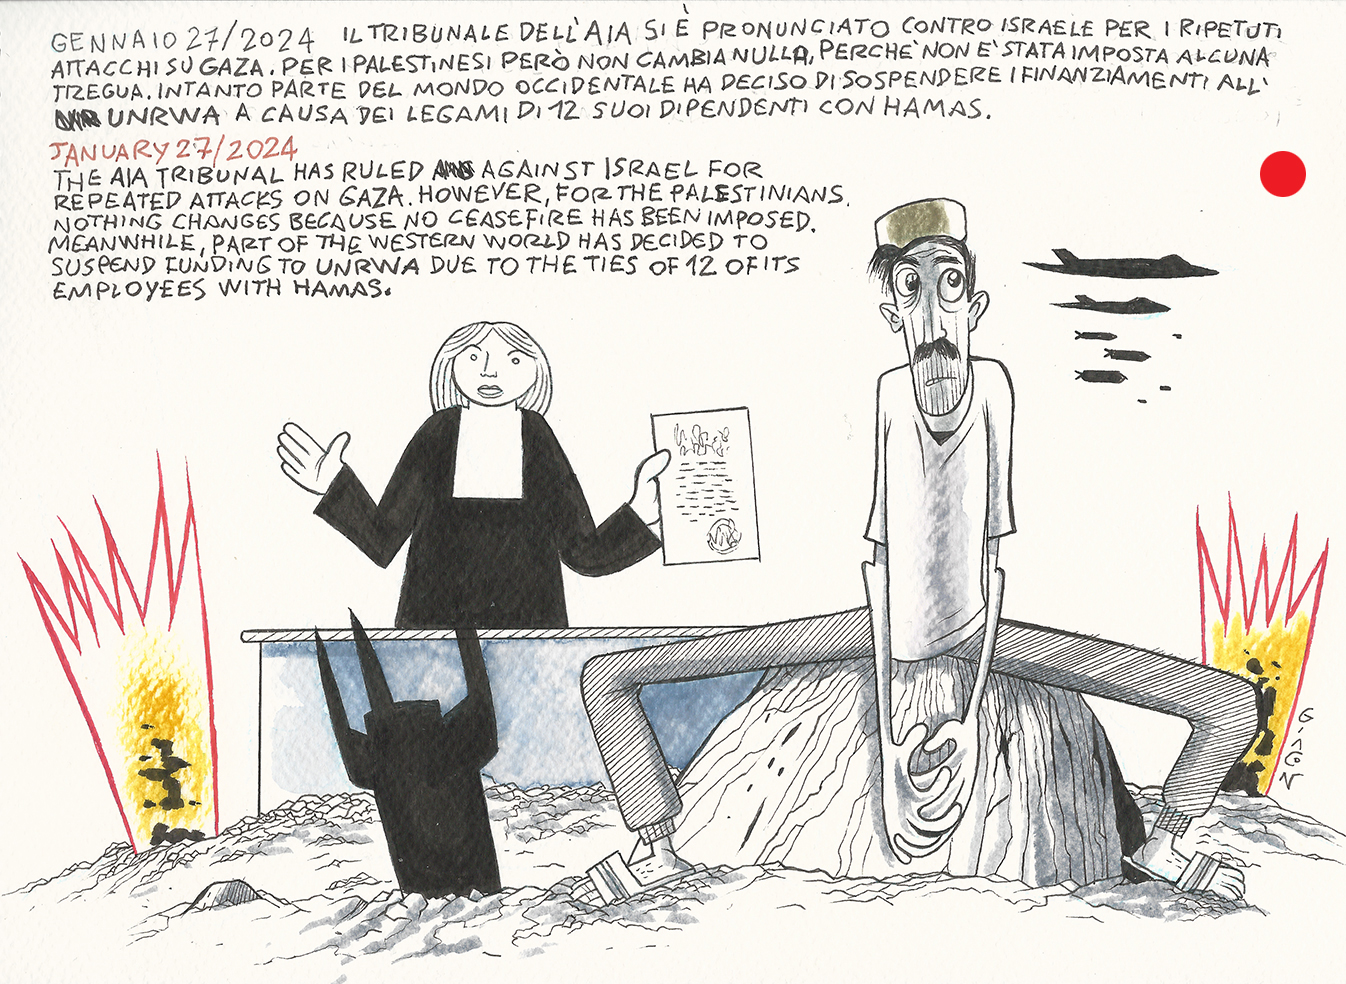 GENNAIO 27/2024 IL TRIBUNALE DELL'AIA SI È PRONUNCIATO CONTRO ISRAELE PER I RIPETUTI
ATTACCHI SU GAZA. PER I PALESTINESI PERÒ NON CAMBIA NULLA, PERCHE' NON E' STATA IMPOSTA ALCUNA
TREGUA. INTANTO PARTE DEL MONDO OCCIDENTALE HA DECISO DI SOSPENDERE I FINANZIAMENTI ALL'
UNRWA A CAUSA DEI LEGAMI DI 12 SUOI DIPENDENTI CON HAMAS.
JANUARY 27/2024
THE AIA TRIBUNAL HAS RULED AGAINST ISRAEL FOR
REPEATED ATTACKS ON GAZA. HOWEVER, FOR THE PALESTINIANS.
NOTHING CHANGES BECAUSE NO CEASEFIRE HAS BEEN IMPOSED.
MEANWHILE, PART OF THE WESTERN WORLD HAS DECIDED TO
SUSPEND FUNDING TO UNRWA DUE TO THE TIES OF 12 OF ITS
EMPLOYEES WITH HAMAS.